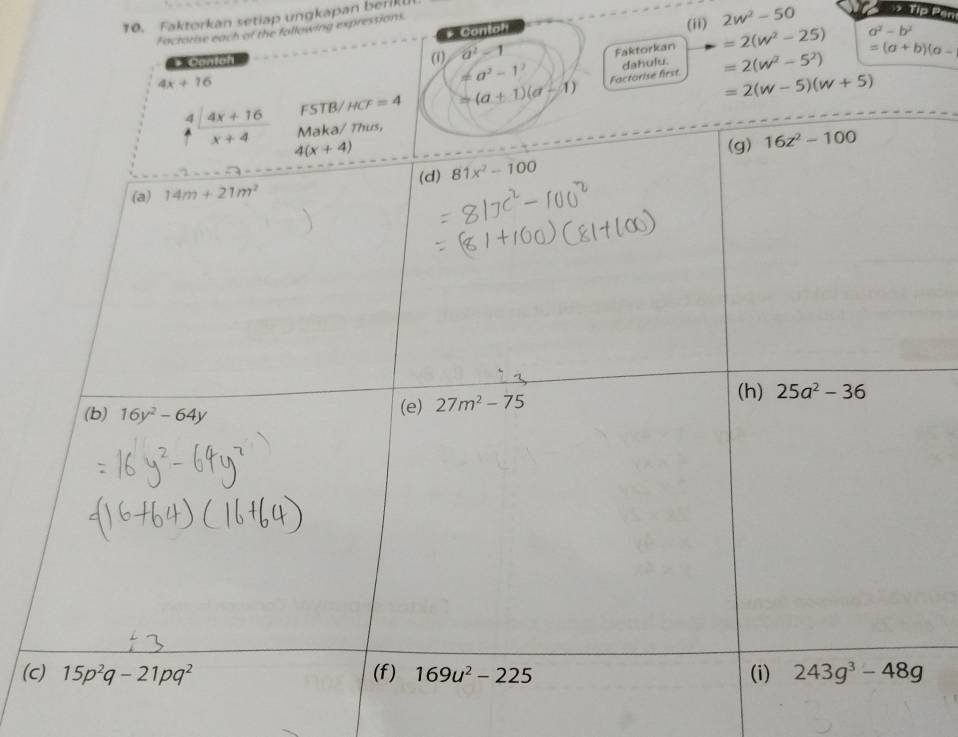 10. Faktorkan setiap ungkapan
Factorise each of the following expressions.
Contoh
4x + 16
4 | 4x + 16
x + 4
FSTB/ HCF = 4
Maka/ Thus,
4(x + 4)
Contoh
(i) a² - 1
= a² - 1²
= (a + 1)(a - 1)
Faktorkan
dahulu.
Factorise first.
(ii) 2w² - 50
= 2(w² - 25)
= 2(w² - 5²)
= 2(w - 5)(w + 5)
Tip Pen
a² - b²
= (a + b)(a -
(a) 14m + 21m²
(d) 81x² - 100
= 81x² - 100²
= (81+100)(81+100)
(g) 16z² - 100
(b) 16y² - 64y
= 16y² - 64y²
=(16+64)(16+64)
÷3
(e) 27m² - 75
(h) 25a² - 36
÷3
(c) 15p²q - 21pq²
(f) 169u² - 225
(i) 243g³ - 48g